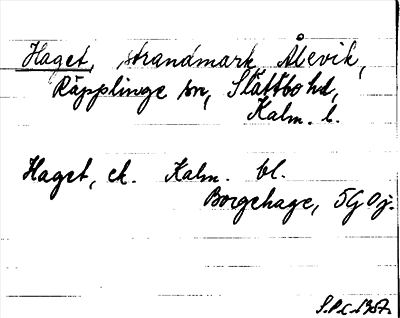 Haget, strandmark Ålevik,
Räpplinge sn, Slättbo hd,
Kalm. l.
Haget, ek. Kalm. bl.
Borgehage, 5G 0j.